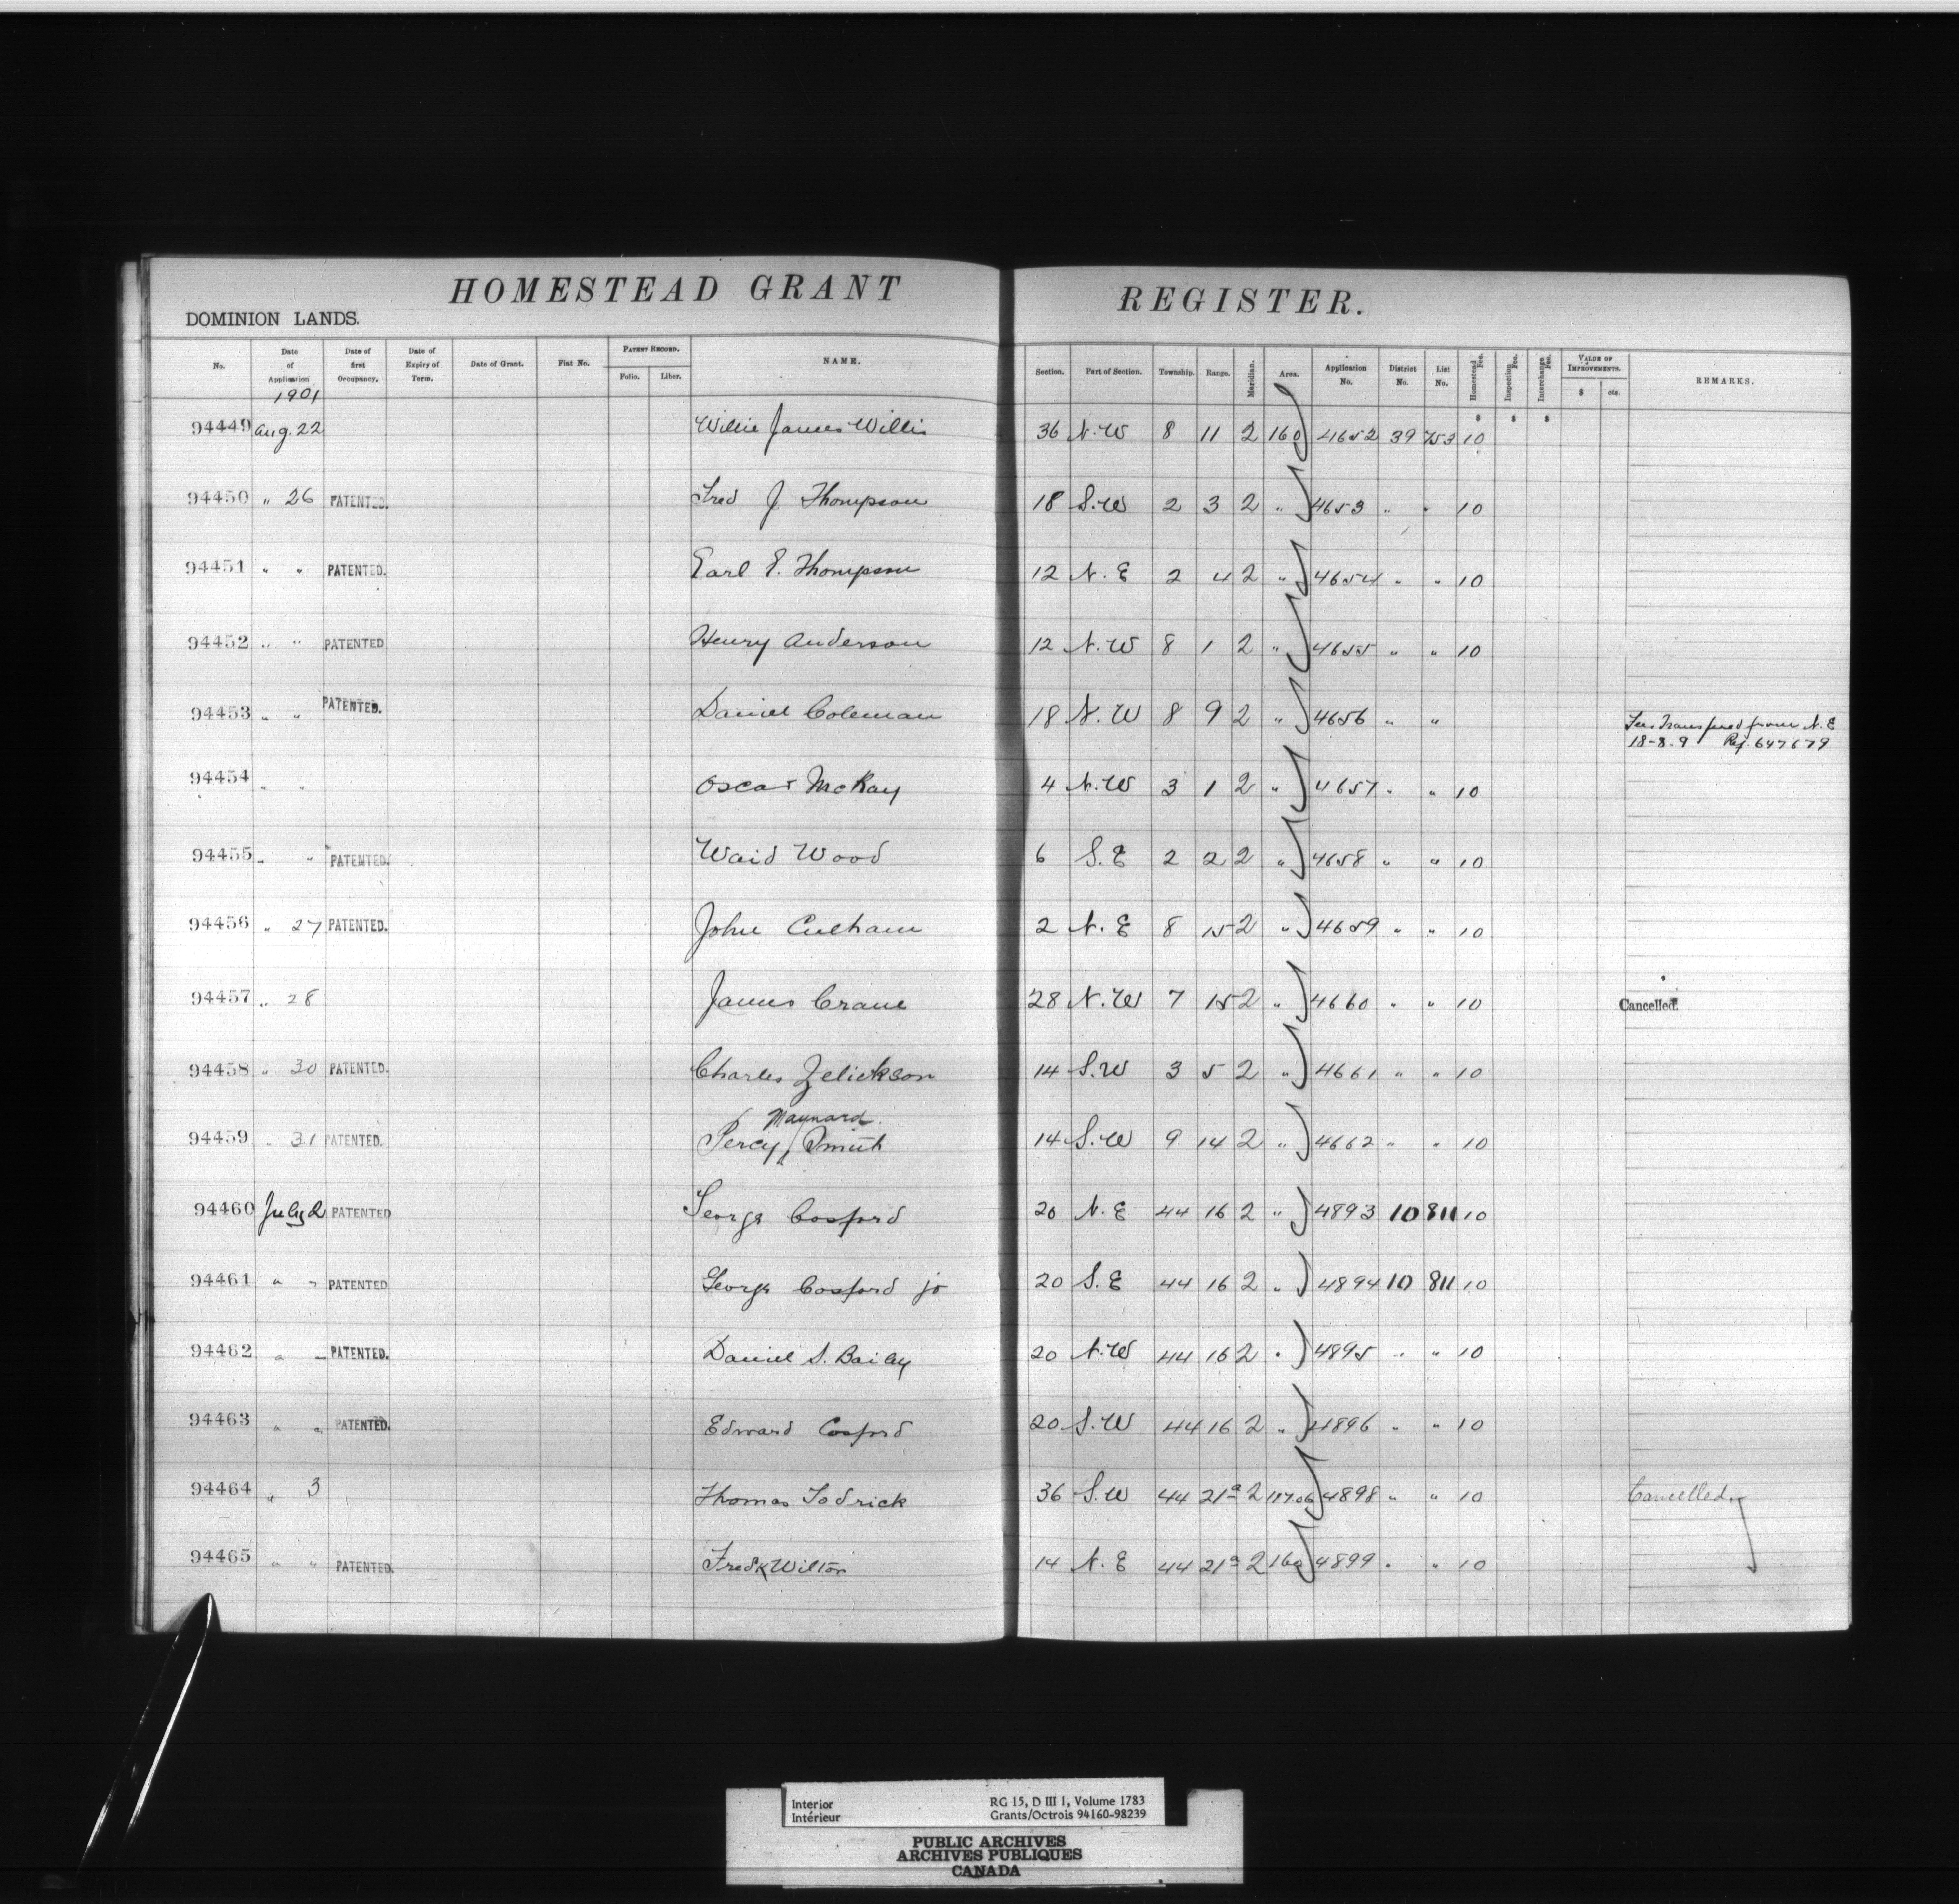 HOMESTEAD GRANT REGISTER.
DOMINION LANDS.
No. Date of Application Date of first Occupancy. Date of Expiry of Term. Date of Grant. Fiat No. PATENT RECORD. Folio. Liber. NAME. Section. Part of Section. Township. Range. Meridian. Area. Application No. District No. List No. Homestead Fee. Inspection Fee. Interchange Fee. VALUE OF IMPROVEMENTS. $ cts. REMARKS.
1901
$ $ $
94449 Aug. 22 Willie James Willis 36 N.W 8 11 2 160 4652 39 753 10
94450 " 26 PATENTED. Fred J Thompson 18 S.W 2 3 2 " 4653 " " 10
94451 " " PATENTED. Earl E. Thompson 12 N.E 2 4 2 " 4654 " " 10
94452 " " PATENTED Henry Anderson 12 N.W 8 1 2 " 4655 " " 10
94453 " " PATENTED. Daniel Coleman 18 N.W 8 9 2 " 4656 " " Fee Transfered from N.E
18-8-9 Ref. 647679
94454 " " Oscar McKay 4 N.W 3 1 2 " 4657 " " 10
94455 " " PATENTED. Waid Wood 6 S.E 2 2 2 " 4658 " " 10
94456 " 27 PATENTED. John Culham 2 N.E 8 15 2 " 4659 " " 10
94457 " 28 James Crane 28 N.W 7 15 2 " 4660 " " 10 Cancelled.
94458 " 30 PATENTED. Charles Zelickson 14 S.W 3 5 2 " 4661 " " 10
Maynard
94459 " 31 PATENTED. Percy Smith 14 S.W 9 14 2 " 4662 " " 10
94460 July 2 PATENTED George Cosford 20 N.E 44 16 2 " 4893 10 811 10
94461 " " PATENTED George Cosford jr 20 S.E 44 16 2 " 4894 10 811 10
94462 " " PATENTED. Daniel S. Bailey 20 N.W 44 16 2 " 4895 " " 10
94463 " " PATENTED. Edward Cosford 20 S.W 44 16 2 " 4896 " " 10
94464 " 3 Thomas Todrick 36 S.W 44 21a 2 4898 " " 10 Cancelled.
94465 " " PATENTED. Fredk Wilton 14 N.E 44 21a 2 160 4899 " " 10
Interior
Intérieur
RG 15, D III 1, Volume 1783
Grants/Octrois 94160-98239
PUBLIC ARCHIVES
ARCHIVES PUBLIQUES
CANADA